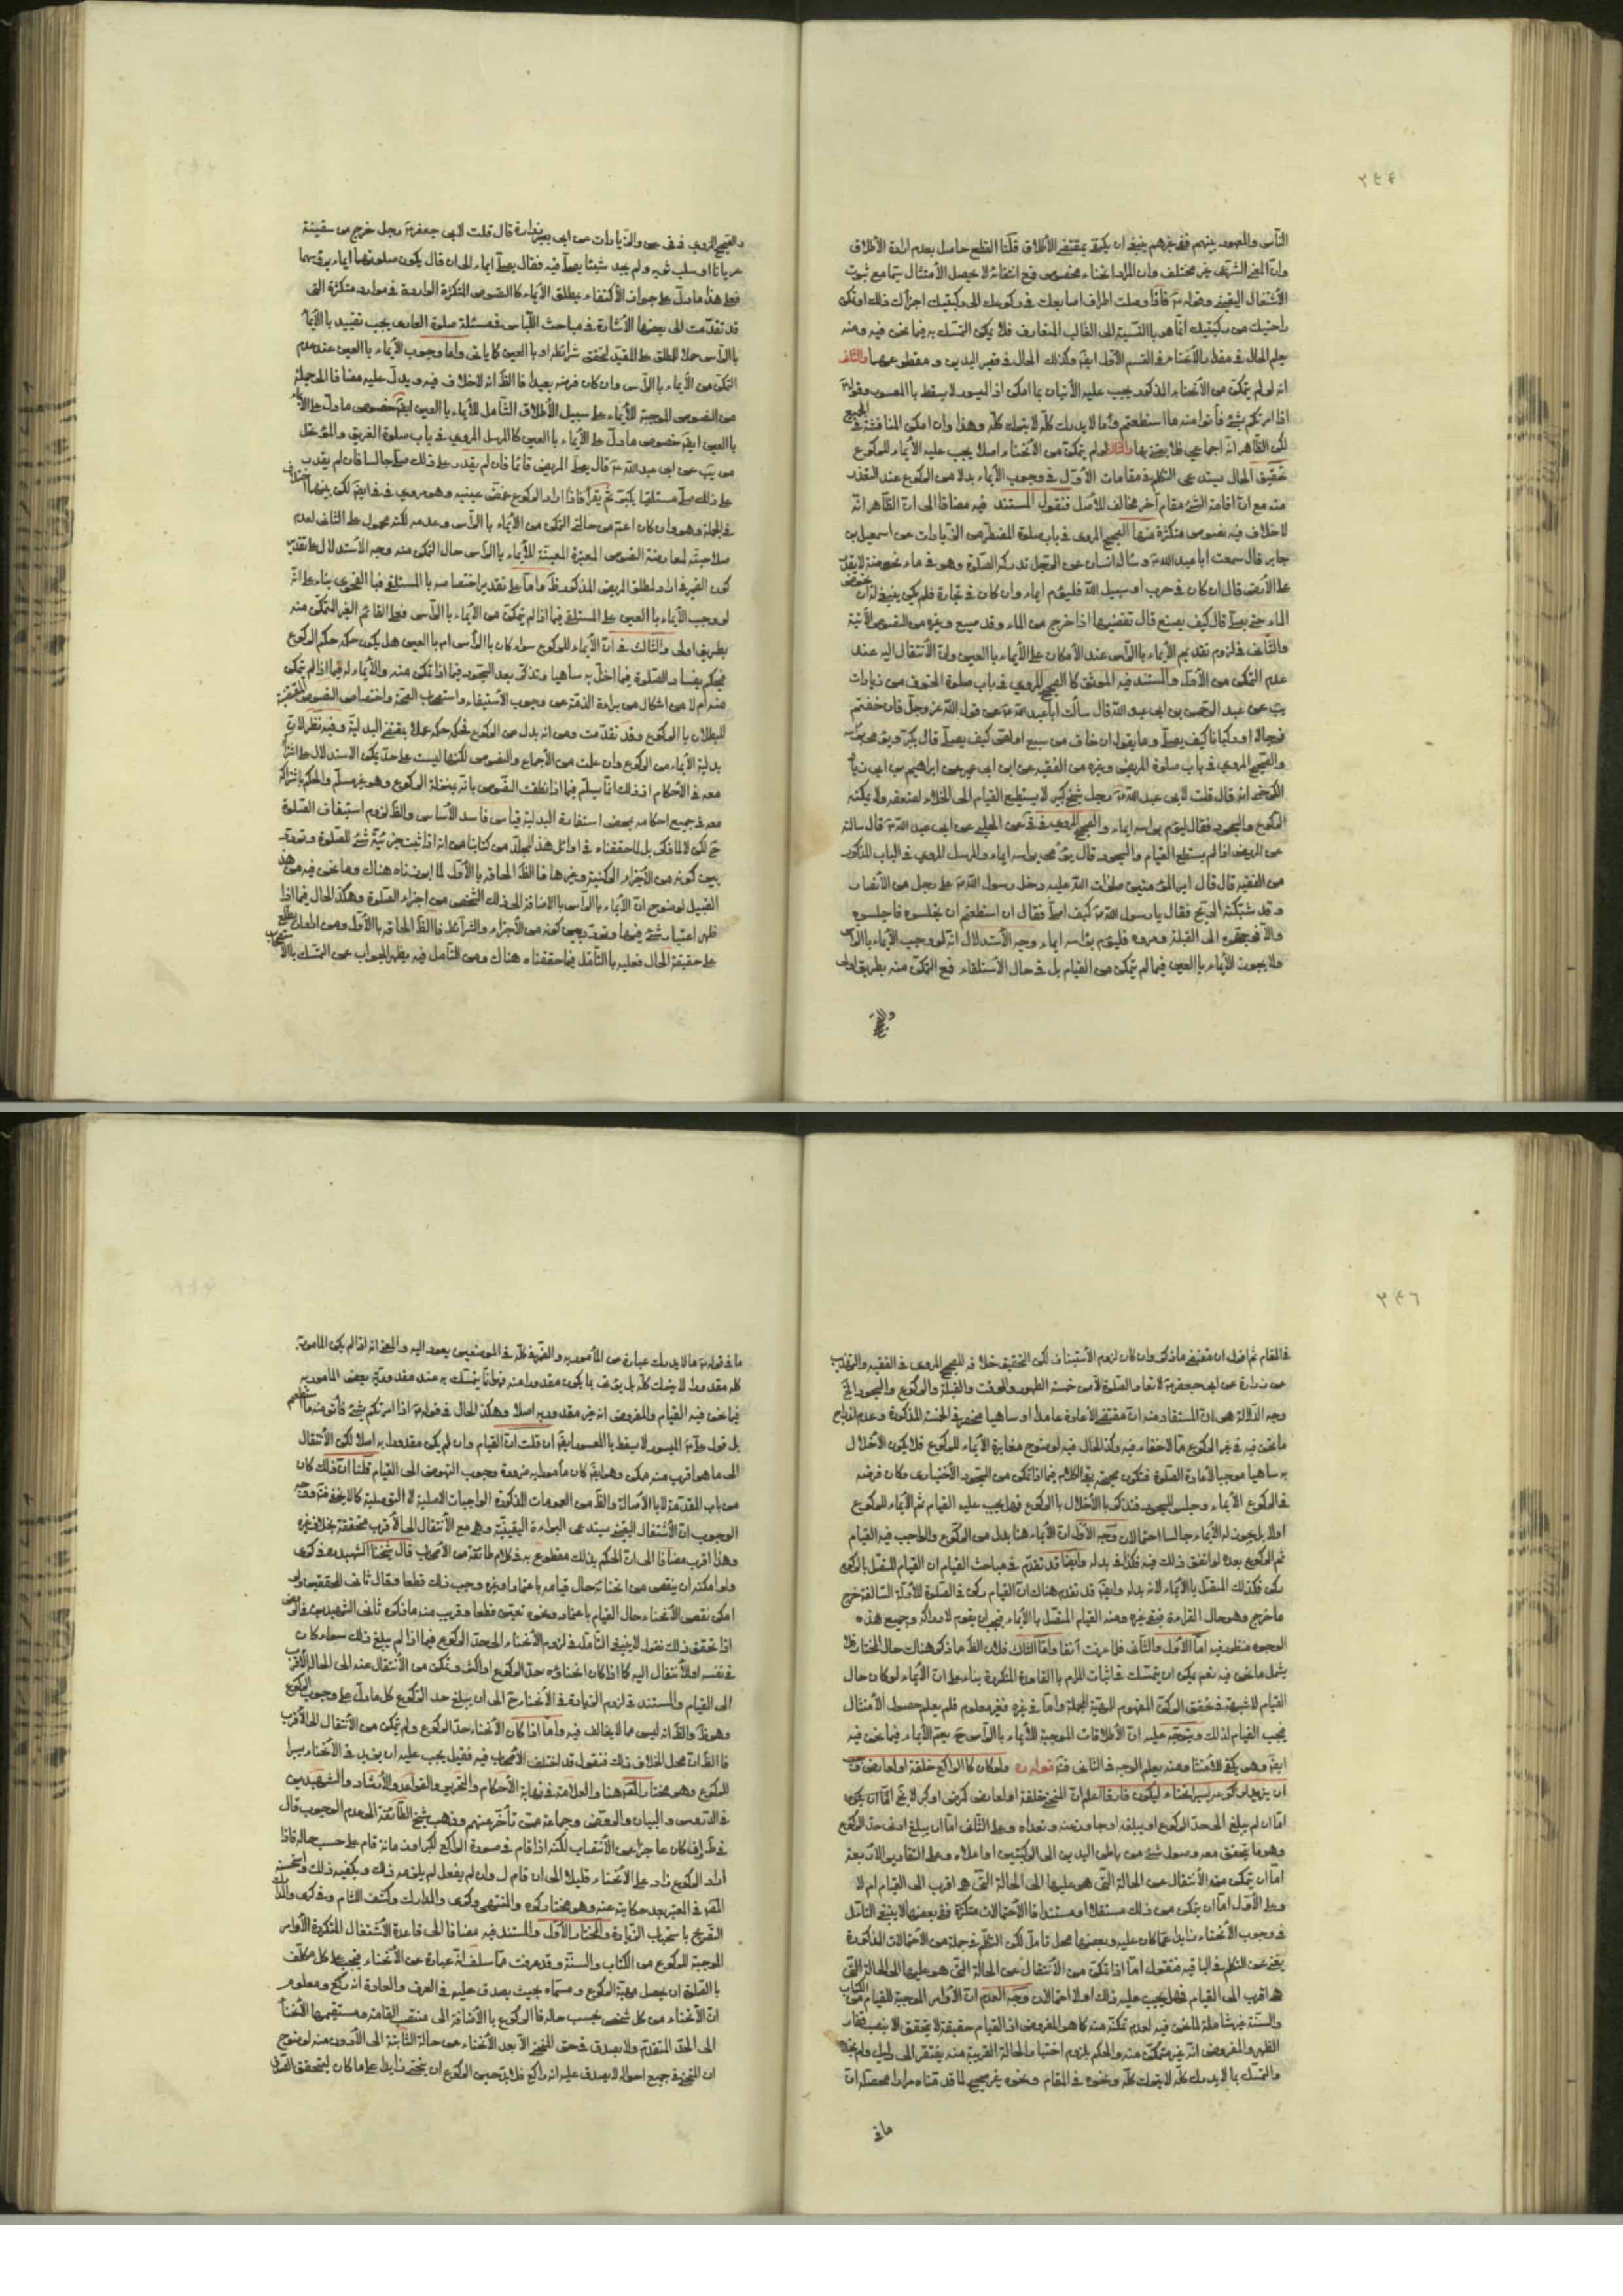 الناس والمعهود بينهم ففي غيرهم ينبغي ان يكتفى بمقتضى الأطلاق قلنا القطع حاصل بعدم ارادة الأطلاق
وان المعنى الشرعي غير مختلف وان المراد انحناء مخصوص فمع انتفائه لا يحصل الأمتثال سيما مع ثبوت
الأشتغال اليقيني وقوله فاذا وصلت اطراف اصابعك في ركوعك الى ركبتيك اجزأك ذلك
راحتيك من ركبتيك انما هو بالنسبة الى الغالب المتعارف فلا يمكن التمسك به فيما نحن فيه ومنه
يعلم الحال في مقدار الأنحناء في القسم الأول ايضا وكذلك الحال في قصير اليدين و مقطوعهما والثاني
انه لو لم يتمكن من الأنحناء المذكور يجب عليه الأتيان بما امكن اذ الميسور لا يسقط بالمعسور وقوله
اذا امرتكم بشئ فأتوا منه ما استطعتم وما لا يدرك كله لا يترك كله وهذا وان امكن المناقشة في الجميع
لكن الظاهر انه اجماعي فلا يعتنى بها والثالث لو لم يتمكن من الأنحناء اصلا يجب عليه الأيماء للركوع
تحقيق الحال يستدعي التكلم في مقامات الأول في وجوب الأيماء بدلا من الركوع عند التعذر
منه مع ان اقامة الشئ مقام آخر مخالف للأصل فنقول المستند فيه مضافا الى ان الظاهر انه
لا خلاف فيه نصوص متكثرة منها الصحيح المروي في باب صلوة المضطر من الزيادات عن اسمعيل بن
جابر قال سمعت ابا عبد الله وسأله انسان عن الرجل تدركه الصلوة وهو في ماء يخوضه لا يقدر
على الأرض قال ان كان في حرب او سبيل الله فليوم ايماء وان كان في تجارة فلم يكن ينبغي له ان يخوض
الماء حتى يصلي قال كيف يصنع قال يقضيها اذا خرج من الماء وقد ضيع وغيره من النصوص الآتية
والثاني في لزوم تقديم الأيماء بالرأس عند الأمكان على الأيماء بالعين وان الأنتقال اليه عند
عدم التمكن من الأول والمستند فيه الموثق كالصحيح المروي في باب صلوة الخوف من زيادات
يب عن عبد الرحمن بن ابي عبد الله قال سألت ابا عبد الله عن قول الله عز وجل فان خفتم
فرجالا او ركبانا كيف يصلي وما يقول ان خاف من سبع او لص كيف يصلي قال يكبر ويومي برأسه
والصحيح المروي في باب صلوة المريض وغيره من الفقيه عن ابن ابي عمير عن ابراهيم بن ابي زياد
الكرخي انه قال قلت لابي عبد الله رجل شيخ كبير لا يستطيع القيام الى الخلاء لضعفه ولا يمكنه
الركوع والسجود فقال ليوم برأسه ايماء والصحيح المروي في في عن الحلبي عن ابي عبد الله قال سألته
عن المريض اذا لم يستطع القيام والسجود قال يومي برأسه ايماء والمرسل المروي في الباب المذكور
من الفقيه قال قال امير المؤمنين صلوات الله عليه دخل رسول الله على رجل من الأنصار
وقد شبكته الريح فقال يا رسول الله كيف اصلي فقال ان استطعتم ان تجلسوه فاجلسوه
والا فوجهوه الى القبلة ومروه فليوم برأسه ايماء وجه الأستدلال انه لو وجب الأيماء بالرأس
ولا يجوز الأيماء بالعين فيما لم يتمكن من القيام بل في حال الأستلقاء فمع التمكن منه بطريق اولى
والصحيح المروي في في والزيادات عن ابي زرارة قال قلت لابي جعفر رجل خرج من سفينة
عريانا او سلب ثيابه ولم يجد شيئا يصلي فيه فقال يصلي ايماء الى ان قال يكون صلوتهما ايماء برؤسهما
فعلى هذا ما دل على جواز الأكتفاء بمطلق الأيماء كالنصوص المتكثرة الواردة في موارد متكثرة التي
قد تقدمت الى بعضها الأشارة في مباحث اللباس في مسئلة صلوة العاري يجب تقييد بالأيماء
بالرأس حملا للمطلق على المقيد لتحقق شرائطه او بالعين كما يأتي واما وجوب الأيماء بالعين عند عدم
التمكن من الأيماء بالرأس وان كان فرضه بعيدا فالظ انه لا خلاف فيه ويدل عليه مضافا الى جملة
من النصوص الموجبة للأيماء على سبيل الأطلاق الشامل للأيماء بالعين ايضا خصوص ما دل على الأيماء
بالعين ايضا خصوص ما دل على الأيماء بالعين كالمرسل المروي في باب صلوة الغريق والمتوحل
من يب عن ابي عبد الله قال يصلي المريض قائما فان لم يقدر على ذلك صلى جالسا فان لم يقدر
على ذلك صلى مستلقيا يكبر ثم يقرأ فاذا اراد الركوع غمض عينيه وهو مروي في في ايضا لكن بينهما اختلاف
في الجملة وهو وان كان اعم من حالتي التمكن من الأيماء بالرأس وعدمه لكنه محمول على الثاني لعدم
صلاحيته لمعارضة النصوص المعتبرة المعينة للأيماء بالرأس حال التمكن منه وجه الأستدلال على تقدير
كون الضمير في اراد لمطلق المريض المذكور ظ واما على تقدير اختصاصه بالمستلقي فبالفحوى بناء على انه
لو وجب الأيماء بالعين على المستلقي فيما اذا لم يتمكن من الأيماء بالرأس فعلى القائم الغير المتمكن منه
بطريق اولى والثالث في ان الأيماء للركوع سواء كان بالرأس ام بالعين هل يكون حكمه حكم الركوع
فيحكم بفساد الصلوة فيما اخل به ساهيا وتذكر بعد السجود فيما اذا تمكن منه والأيماء له فيما اذا لم يتمكن
منه ام لا من اشكال من براءة الذمة عن وجوب الأستيفاء واستصحاب الصحة واختصاص النصوص المقتضية
للبطلان بالركوع وقد تقدمت ومن انه بدل من الركوع فحكمه حكمه عملا بمقتضى البدلية وفيه نظر لان
بدلية الأيماء من الركوع وان علمت من الأجماع والنصوص لكنها ليست على حد يمكن الاستدلال على اشتراكه
معه في الأحكام اذ ذلك انما يسلم فيما اذا نطقت النصوص بانه بمنزلة الركوع وهو غير مسلم والحكم باشتراكه
معه في جميع احكامه بمحض استفادة البدلية قياس فاسد الأساس والظ لزوم استيناف الصلوة
ح لكن لا لما ذكر بل لما حققناه في اوائل هذا المجلد من كتابنا من انه اذا ثبت جزئية شئ للصلوة وتردد
بين كونه من الأجزاء الركنية وغيرها فالظ الحاقه بالأول لما اوضحناه هناك وما نحن فيه من هذا
القبيل لوضوح ان الأيماء بالرأس بالاضافة الى ذلك الشخص من اجزاء الصلوة وهكذا الحال فيما اذا
ظهر اعتبار شئ فيها وتردد بين كونه من الأجزاء والشرائط فالظ الحاقه بالأول ومن اراد ان يطلع
على حقيقة الحال فعليه بالتأمل فيما حققناه هناك ومن التأمل فيه يظهر الجواب عن التمسك بالأستصحاب
في المقام ثم اقول ان مقتضى ما ذكر وان كان لزوم الأستيناف لكن التحقيق خلافه للصحيح المروي في الفقيه والتهذيب
عن زرارة عن ابي جعفر لا تعاد الصلوة الا من خمسة الطهور والوقت والقبلة والركوع والسجود الخ
وجه الدلالة هو ان المستفاد منه ان مقتضى الأعادة عامدا او ساهيا منحصر في الخمسة المذكورة وعدم اندراج
ما نحن فيه في غير الركوع مما لا خفاء فيه وكذا الحال فيه لوضوح مغايرة الأيماء للركوع فلا يكون الأخلال
به ساهيا موجبا لأعادة الصلوة فتكون صحيحة بقي الكلام فيما اذا تمكن من السجود الأختياري وكان فرضه
في الركوع الأيماء وجلس للسجود فتذكر بالأخلال بالركوع فهل يجب عليه القيام ثم الأيماء للركوع
اولا بل يجوز له الأيماء جالسا احتمالان وجه الأول ان الأيماء هنا بدل من الركوع والواجب فيه القيام
ثم الركوع بعده لو اتفق ذلك فيه فكذا في بدله وايضا قد تقدم في مباحث القيام ان القيام المتصل بالركوع
ركن فكذلك المتصل بالأيماء لانه بدله وايضا قد تقدم هناك ان القيام ركن في الصلوة للأدلة السالفة خرج
ما خرج وهو حال القراءة فبقي غيره ومنه القيام المتصل بالأيماء فيجب ان يقوم لادراكه وجميع هذه
الوجوه منظور فيه اما الأول والثاني فلما عرفت آنفا واما الثالث فلان الظ ما ذكر هناك حال المختار فلا
يشمل ما نحن فيه نعم يمكن ان يتمسك في اثبات المرام بالقاعدة المتكررة بناء على ان الأيماء لو كان حال
القيام لا شبهة في تحقق الركن المفهوم للهيئة الجملة واما في غيره فغير معلوم فلم يعلم حصول الأمتثال
يجب القيام لذلك ويتوجه عليه ان الأطلاقات الموجبة للأيماء بالرأس ح يعم الأيماء فيما نحن فيه
ايضا وهو يكفي للأمتثال ومنه يعلم الوجه في الثاني قوله ره ولو كان كالراكع خلقة او لعارض وجب
ان يزيد لركوعه يسير انحناء ليكون فارقا اعلم ان المنحني خلقة او لعارض كمرض او كبر لا يخ اما ان يكون
اما ان لم يبلغ الى حد الركوع او يبلغه او جاوز منه وتعداه وعلى الثاني اما ان يبلغ اول حد الركوع
وهو ما يتحقق معه وصول شئ من باطن اليدين الى الركبتين او اعلاه وعلى التقادير الأربعة
اما ان يتمكن منه الأنتقال عن الحالة التي هو عليها الى الحالة التي هو اقرب الى القيام ام لا
وعلى الأول اما ان يتمكن من ذلك مستقلا او مستندا فالأحتمالات متكثرة وفي بعضها لا ينبغي التأمل
في وجوب الأنحناء زايدا عما كان عليه وبعضها محل تأمل لكن التكلم في جملة من الأحتمالات المذكورة
يغني عن التكلم في الباقي فنقول اما اذا تمكن من الأنتقال عن الحالة التي هو عليها الى الحالة التي
هو اقرب الى القيام فهل يجب عليه ذلك اولا احتمالان وجه العدم ان الأوامر الموجبة للقيام من الكتاب
والسنة غير شاملة لما نحن فيه لعدم تمكنه منه كما هو المفروض اذ القيام حقيقة لا يتحقق الا بنصب فقار
الظهر والمفروض انه غير متمكن منه والحكم بلزوم اختيار الحالة القريبة منه يفتقر الى دليل ولم نجد
والتمسك بما لا يدرك كله لا يترك كله ونحوه في المقام ونحوه غير صحيح لما قدمناه مرارا محصله ان
ما في
ما في قوله ما لا يدرك عبارة عن المأمور به والضمير في كله في الموضعين يعود اليه والمعنى انه اذا لم يكن المأمور به
كله مقدورا لا يترك كله بل يؤتى بما يكون مقدورا منه فهو انما يتمسك به عند مقدورية بعض المأمور به
فيما نحن فيه القيام والمفروض انه غير مقدور به اصلا وهكذا الحال في قوله اذا امرتكم بشئ فأتوا منه ما استطعتم
بل قول الميسور لا يسقط بالمعسور ايضا ان قلت ان القيام وان لم يكن مقدورا به اصلا لكن الأنتقال
الى ما هو اقرب منه ممكن وهو ايضا كان مأمورا به ضرورة وجوب النهوض الى القيام قلنا ان ذلك كان
من باب المقدمة لا بالأصالة والظ من العمومات المذكورة الواجبات الاصلية لا التوصلية كما لا يخفى ووجه
الوجوب ان الأشتغال اليقيني يستدعي البراءة اليقينية وهو مع الأنتقال الى الأقرب متحققة بخلاف غيره
وهذا اقرب مضافا الى ان الحكم بذلك مقطوع به في كلام طائفة من الأصحاب قال شيخنا الشهيد في ذكرى
ولو امكنه ان ينقص من انحنائه حال قيامه باعتماد او غيره وجب ذلك قطعا وقال ثاني المحققين ولو
امكن نقص الأنحناء حال القيام باعتماد ونحوه تعين قطعا وقريب منه ما ذكره ثاني الشهيدين في الروض
اذا تحقق ذلك نقول لا ينبغي التأمل في لزوم الأنحناء الى حد الركوع فيما اذا لم يبلغ ذلك سواء كان
في نفسه او للأنتقال اليه كما اذا كان انحناؤه حد الركوع او اكثر وتمكن من الأنتقال عنه الى الحالة الأقرب
الى القيام والمستند في لزوم الزيادة في الأنحناء ح الى ان يبلغ حد الركوع كل ما دل على وجوب الركوع
وهو ظ والظ انه ليس مما لا يخالف فيه واما اذا كان الأنحناء حد الركوع ولم يتمكن من الأنتقال الى الأقرب
فالظ ان محل الخلاف ذلك فنقول قد اختلف الأصحاب فيه فقيل يجب عليه ان يزيد في الأنحناء يسيرا
للركوع وهو مختار المص هنا والعلامة في نهاية الأحكام والتحرير والقواعد والأرشاد والشهيدين
في الدروس والبيان والروض وجماعة ممن تأخر منهم وذهب شيخ الطائفة الى عدم الوجوب قال
في ط وان كان عاجزا عن الأنتصاب لكنه اذا قام في صورة الراكع لكبر او زمانة قام على حسب حاله فاذا
اراد الركوع زاد على الأنحناء قليلا الى ان قام ل وان لم يفعل لم يلزمه ذلك ويكفيه ذلك واستحسنه
المص في المعتبر بعد حكايته عنه وهو مختار كره والمنتهى وكرى والمدارك وكشف اللثام وفي كرى والمدارك
التصريح باستحباب الزيادة والمختار الأول والمستند فيه مضافا الى قاعدة الأشتغال المتكررة الأوامر
الموجبة للركوع من الكتاب والسنة وقد عرفت مما سلف انه عبارة عن الأنحناء فيجب على كل مكلف
بالصلوة ان يحصل هيئة الركوع ومسماه بحيث يصدق عليه في العرف والعادة انه ركع ومعلوم
ان الأنحناء من كل شخص بحسب حاله فالركوع بالأضافة الى منتصب القامة ومستقيمها الأنحناء
الى الحد المتقدم ولا يصدق في حق المنحني الا بعد الأنحناء عن حالة الثابتة الى الأدون منه لوضوح
ان المنحني في جميع احواله لا يصدق عليه انه راكع فلابد حين الركوع ان ينحني زايدا على ما كان ليتحقق الفرق